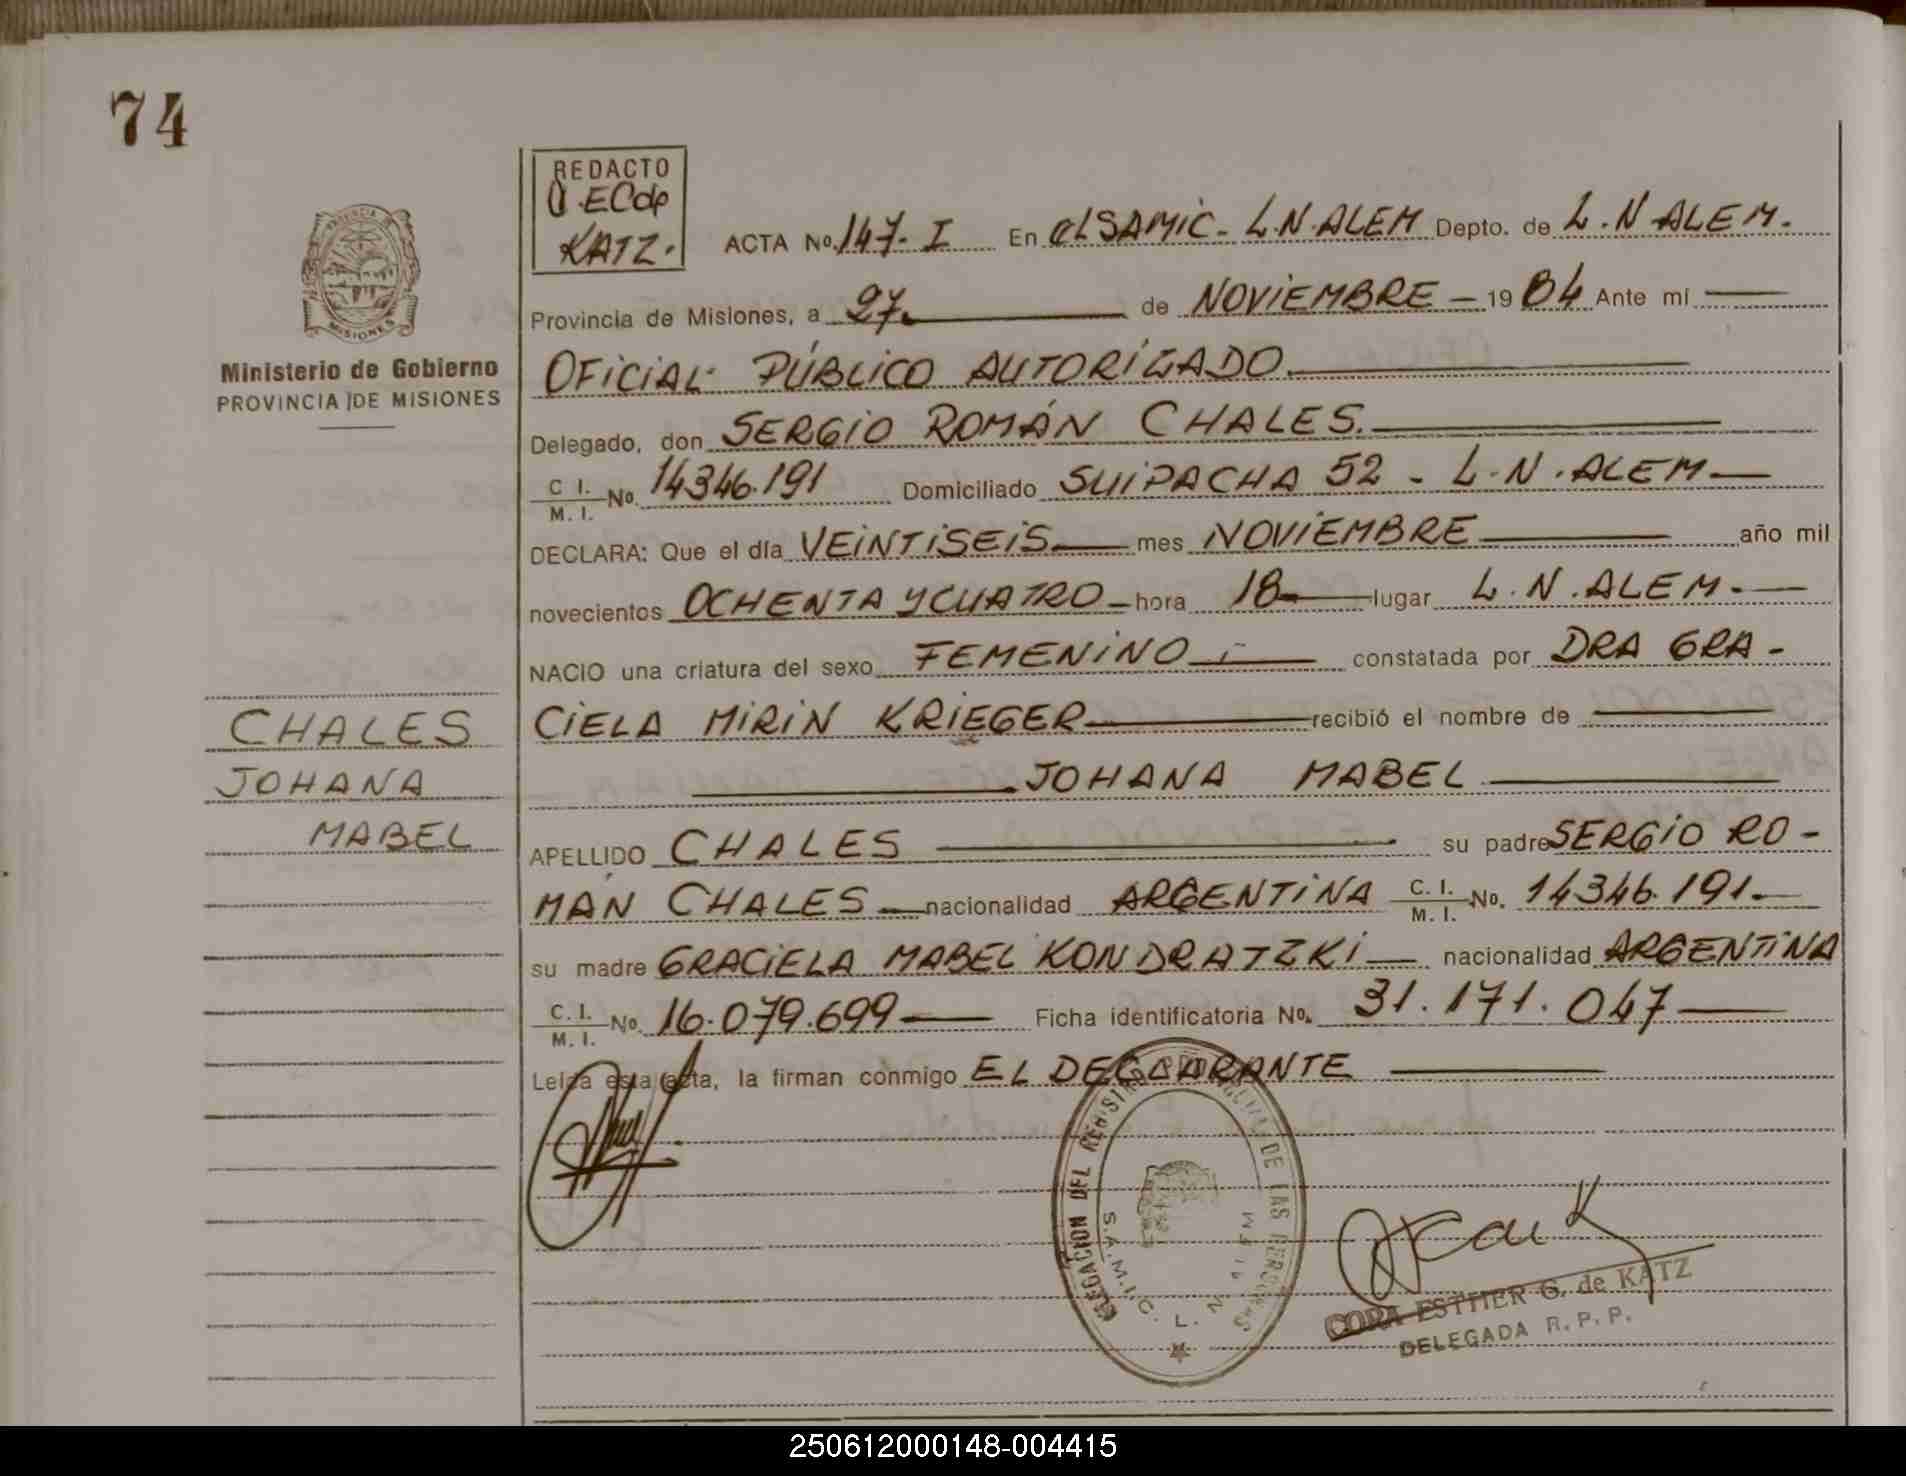 74
PROVINCIA DE
MISIONES
Ministerio de Gobierno
PROVINCIA DE MISIONES
REDACTO
ECde
KATZ.
ACTA No. 147-I En el SAMIC - L.N. ALEM Depto. de L.N ALEM.
Provincia de Misiones, a 27 de NOVIEMBRE - 19 84 Ante mi
OFICIAL PÚBLICO AUTORIZADO.
Delegado, don SERGIO ROMÁN CHALES.
C I. M. I. No. 14346.191 Domiciliado SUIPACHA 52 - L.N. ALEM
DECLARA: Que el día VEINTISEIS mes NOVIEMBRE año mil
novecientos OCHENTA Y CUATRO hora 18 lugar L.N. ALEM.
NACIO una criatura del sexo FEMENINO constatada por DRA GRA-
CIELA MIRIN KRIEGER recibió el nombre de
JOHANA MABEL
APELLIDO CHALES su padre SERGIO RO-
MÁN CHALES nacionalidad ARGENTINA C. I. M. I. No. 14346.191.
su madre GRACIELA MABEL KONDRATZKI nacionalidad ARGENTINA
C. I. M. I. No. 16.079.699 Ficha identificatoria No. 31.171.047
Leida esta acta, la firman conmigo EL DECLARANTE
CHALES
JOHANA
MABEL
DELEGACION DEL REGISTRO PROVINCIAL DE LAS PERSONAS
S.A.M.I.C. L. N. ALEM
CORA ESTHER G. de KATZ
DELEGADA R. P. P.
250612000148-004415